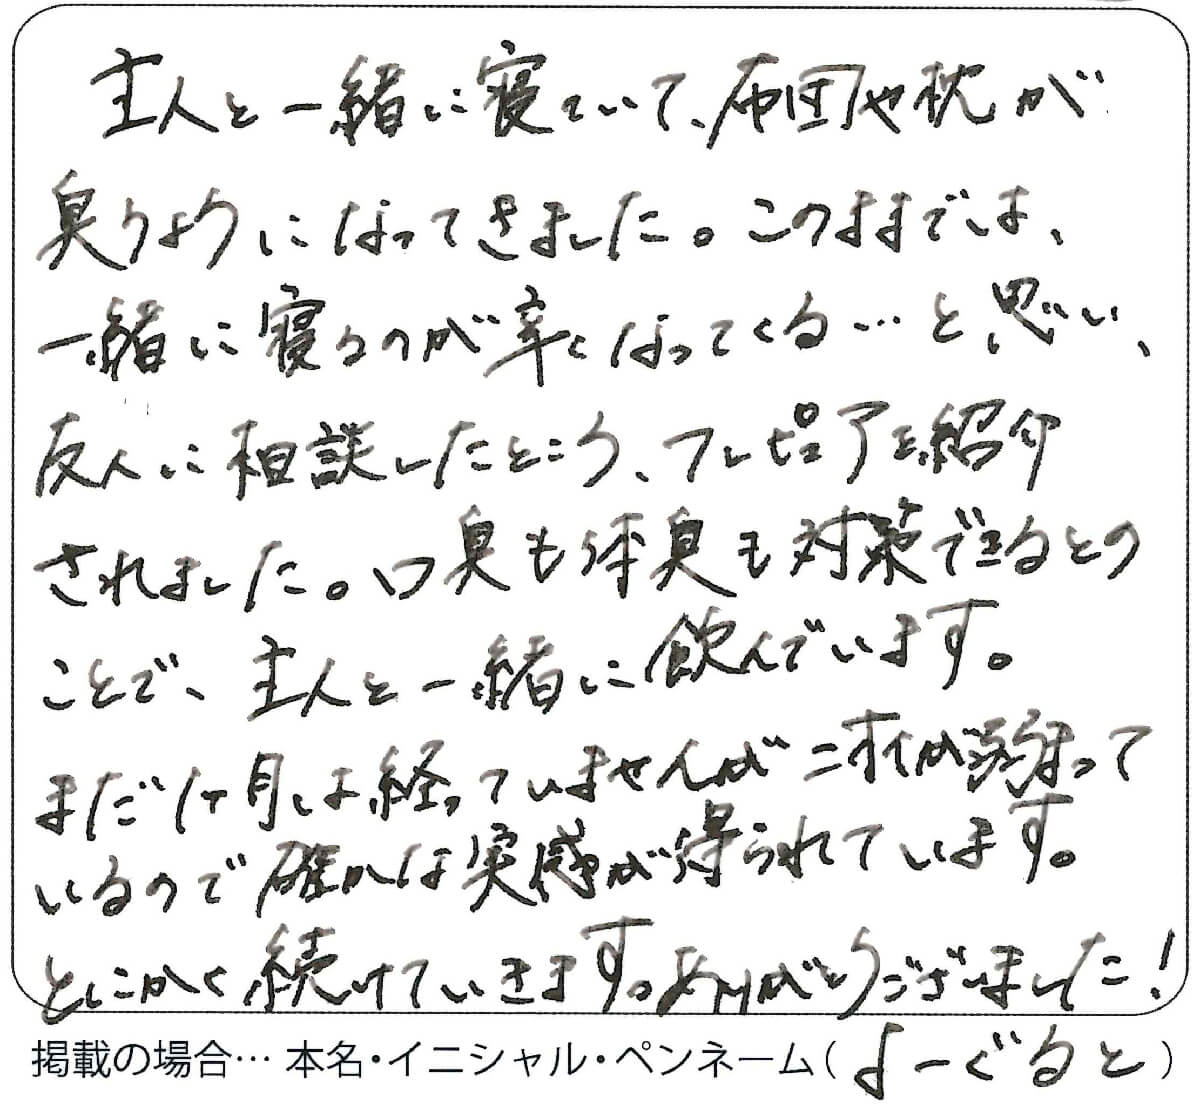 主人と一緒に寝ていて、布団や枕が
臭うようになってきました。このままでは、
一緒に寝るのが辛くなってくる…と思い、
友人に相談したところ、フレピュアを紹介
されました。口臭も体臭も対策できるとの
ことで、主人と一緒に飲んでいます。
まだ1ヶ月しか経っていませんがニオイが弱まって
いるので確かな実感が得られています。
とにかく続けていきます。ありがとうございました!
掲載の場合… 本名・イニシャル・ペンネーム(よーぐると)